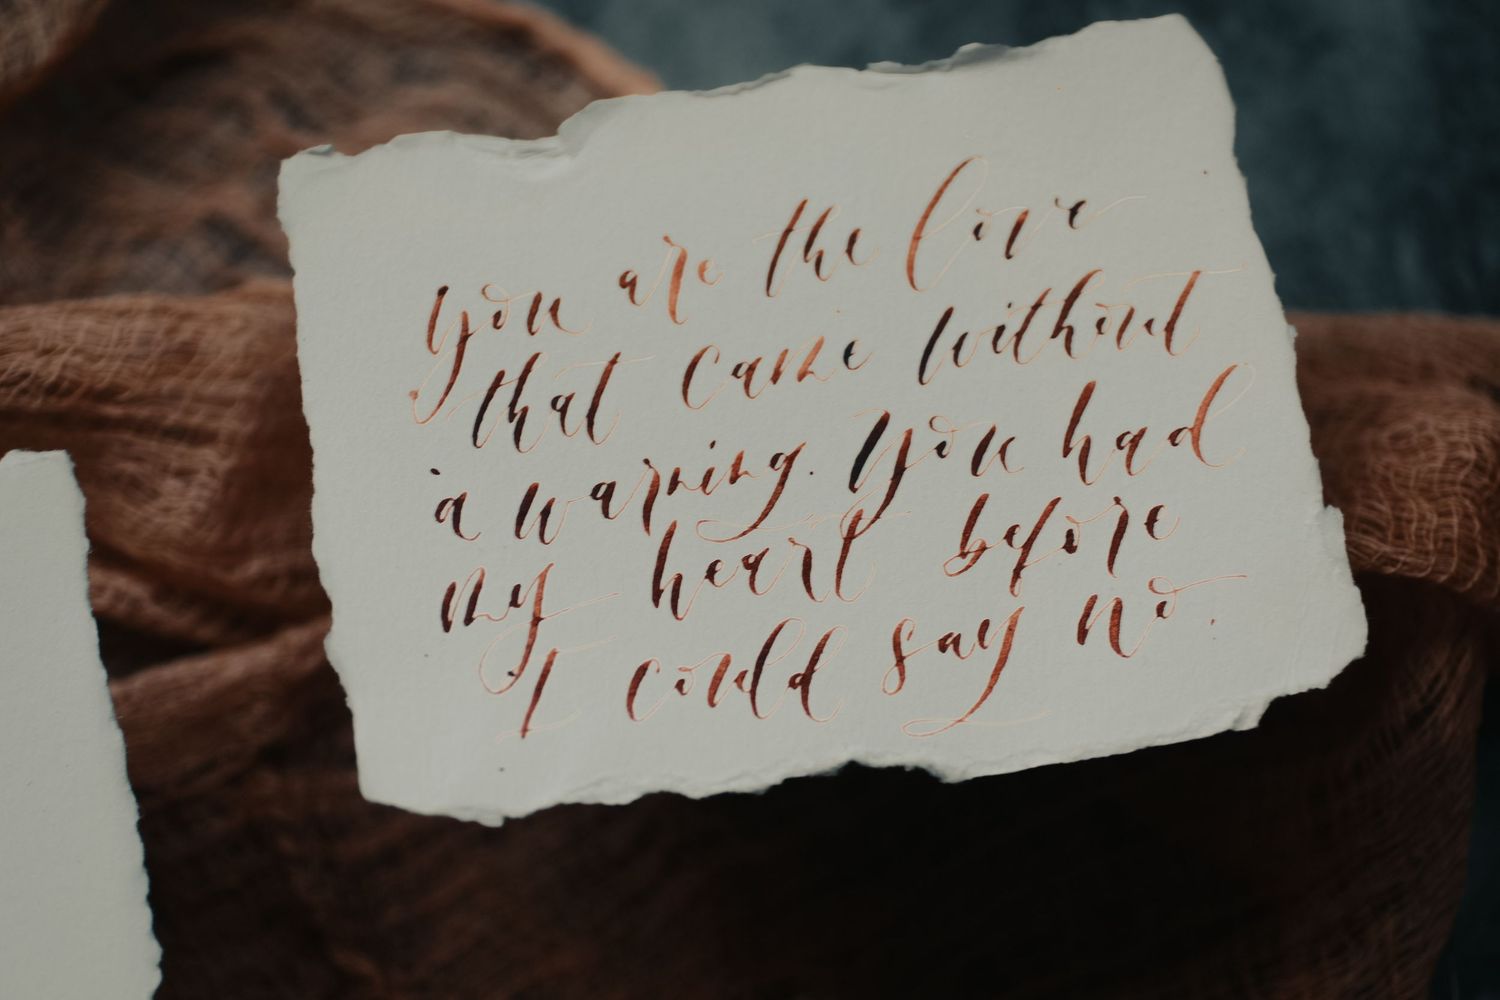 you are the love
that came without
a warning. You had
my heart before
I could say no.